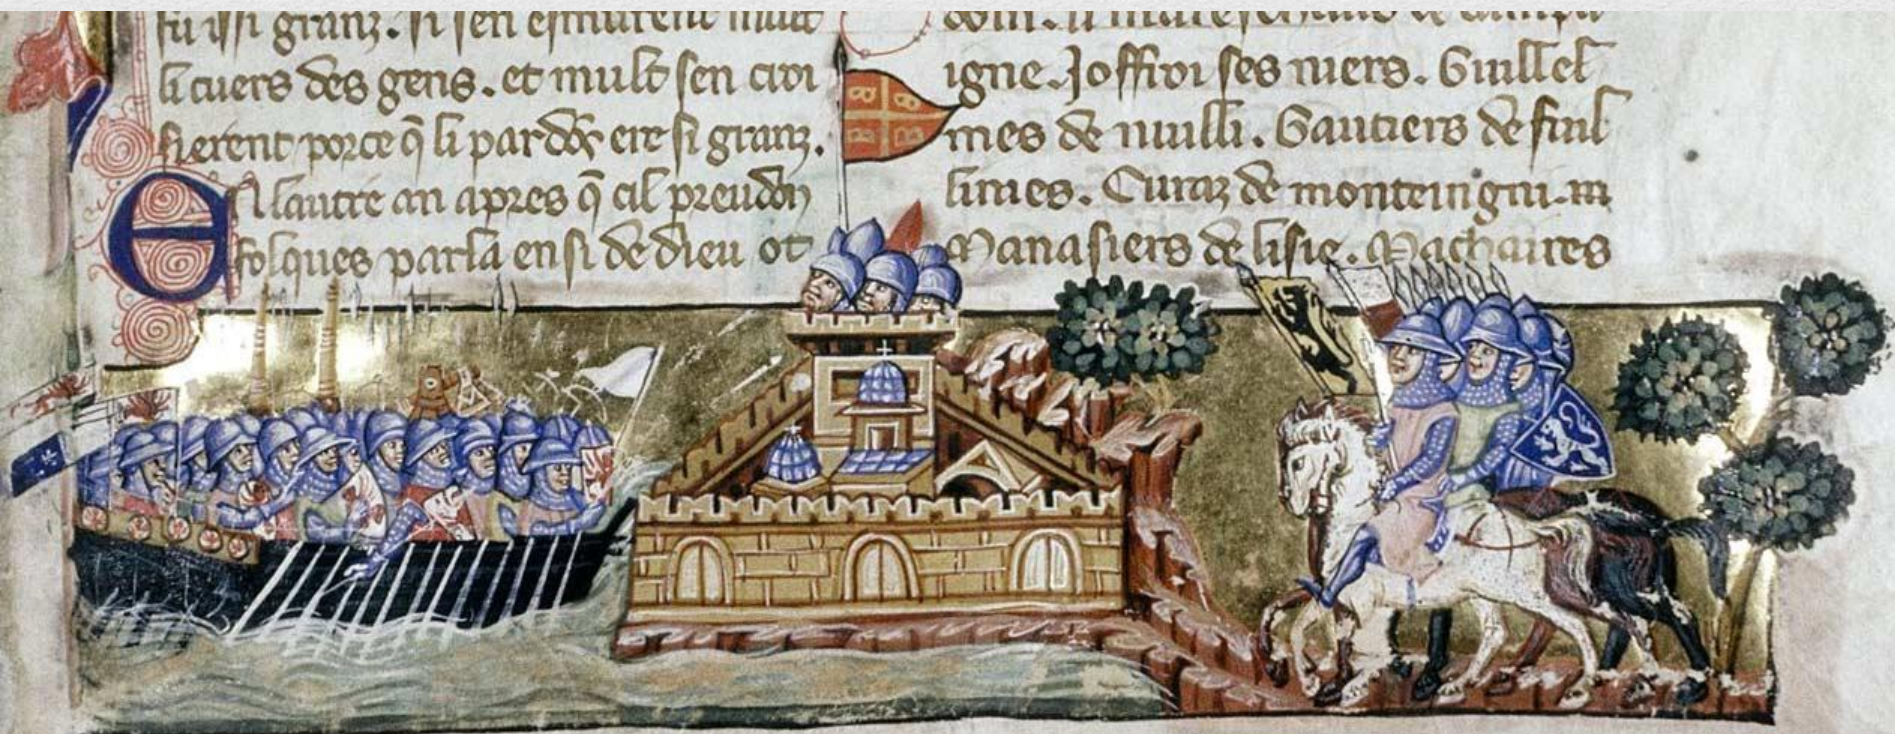 fu issi granz. si sen esmurent mult
li cuers des gens. et mult sen croi
sierent porce q̃ li pardõs ere si granz.
EN lautre an apres q̃ cil preudon
folques parla ensi de dieu ot
li mareschaus de champa
igne. Joffroi ses niers. Guillel
mes de niulli. Gautiers de fiul
limes. Euraz de monteingni. m
Manasiers de lisle. Machaires
B B
B B